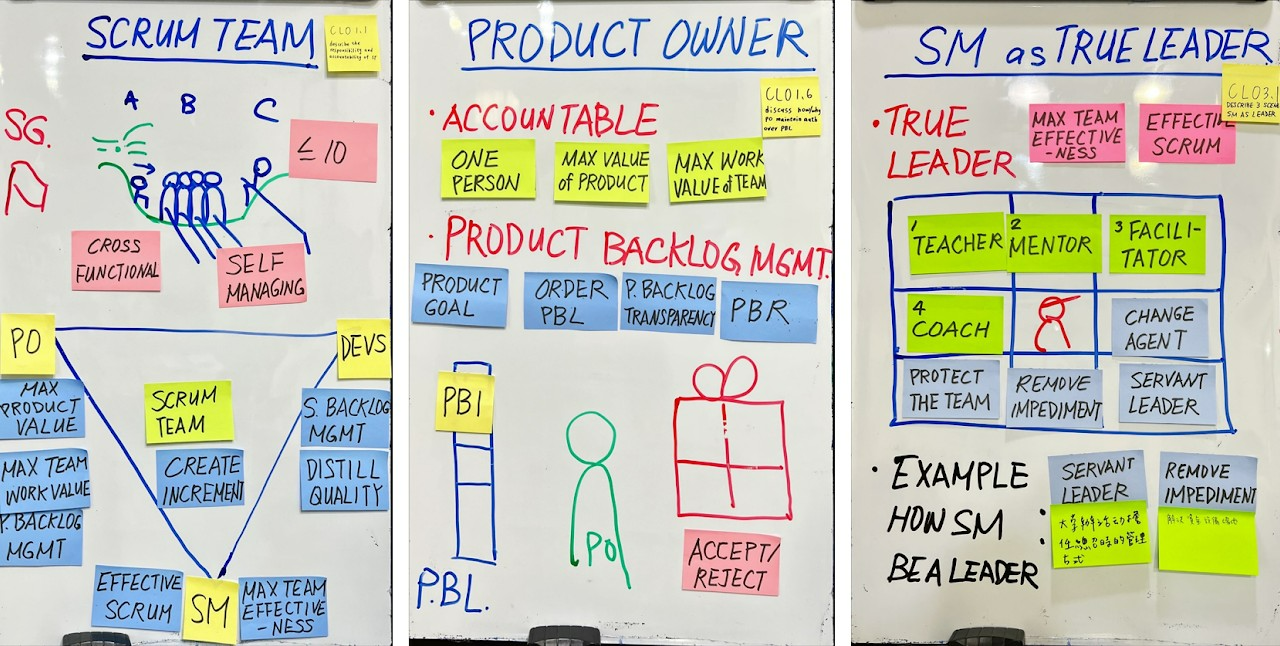 SCRUM TEAM
CLO1.1
describe the
responsibility and
accountability of ST
A B C
SG.
≤ 10
CROSS
FUNCTIONAL
SELF
MANAGING
PO
DEVS
MAX
PRODUCT
VALUE
SCRUM
TEAM
S. BACKLOG
MGMT
MAX TEAM
WORK VALUE
CREATE
INCREMENT
DISTILL
QUALITY
P. BACKLOG
MGMT
EFFECTIVE
SCRUM
SM
MAX TEAM
EFFECTIVE
-NESS
PRODUCT OWNER
CLO1.6
discuss how/why
PO maintain auth
over PBL
· ACCOUNTABLE
ONE
PERSON
MAX VALUE
of PRODUCT
MAX WORK
VALUE of TEAM
· PRODUCT BACKLOG MGMT.
PRODUCT
GOAL
ORDER
PBL
P. BACKLOG
TRANSPARENCY
PBR
PBI
PO
P.BL.
ACCEPT/
REJECT
SM as TRUE LEADER
CLO3.1
DESCRIBE 3 SCEN
SM AS LEADER
· TRUE
LEADER
MAX TEAM
EFFECTIVE
-NESS
EFFECTIVE
SCRUM
1 TEACHER
2 MENTOR
3 FACILI-
TATOR
4 COACH
CHANGE
AGENT
PROTECT
THE TEAM
REMOVE
IMPEDIMENT
SERVANT
LEADER
· EXAMPLE
HOW SM :
BE A LEADER
SERVANT
LEADER
大草辦活動擔
任總召時的管理
方式
REMOVE
IMPEDIMENT